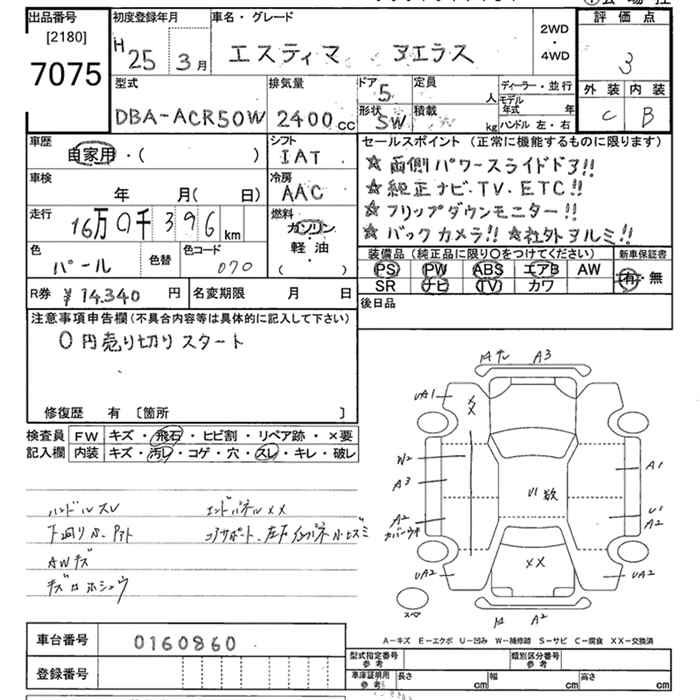 出品番号 初度登録年月 車名・グレード 2WD・4WD 評価点
[2180]
7075 H 25 3月 エスティマ アエラス 3
型式 排気量 ドア 5 定員 人 ディーラー・並行 外装 内装
モデル年式 年
DBA-ACR50W 2400 cc 形状 5W 積載 kg ハンドル 左・右 C B
車歴 シフト セールスポイント (正常に機能するものに限ります)
自家用・( ) IAT ☆両側パワースライドドア!!
車検 冷房 ☆純正ナビ.TV.ETC!!
年 月( 日) AAC ☆フリップダウンモニター!!
走行 16万0千396km 燃料 ガソリン ☆バックカメラ!! ☆社外アルミ!!
軽・油
( )
色 色替 色コード 装備品 (純正品に限り〇をつけてください) 新車保証書
パール 070 PS PW ABS エアB AW 有・無
SR ナビ TV カワ
R券 ¥14.340 円 名変期限 月 日 後日品
注意事項申告欄 (不具合内容等は具体的に記入して下さい)
0円売り切りスタート
修復歴 有 〔箇所 〕
検査員 FW キズ・飛石・ヒビ割・リペア跡・×要
記入欄 内装 キズ・汚レ・コゲ・穴・スレ・キレ・破レ
ハンドルスレ エンドパネルXX
下回り
コアサポート、左右インパネ
AWキズ
キズ ホシュウ
A3
UA1
W2
A3
A2
A1
U1
A2
U1 数
XX
UA2 UA2
スペア
A2
A-キズ E-エクボ U-凹み W-補修跡 S-サビ C-腐食 XX-交換済
車台番号 0160860
型式指定番号 参考 類別区分番号 参考
登録番号 車庫証明用 参考 長さ cm 幅 cm 高さ cm